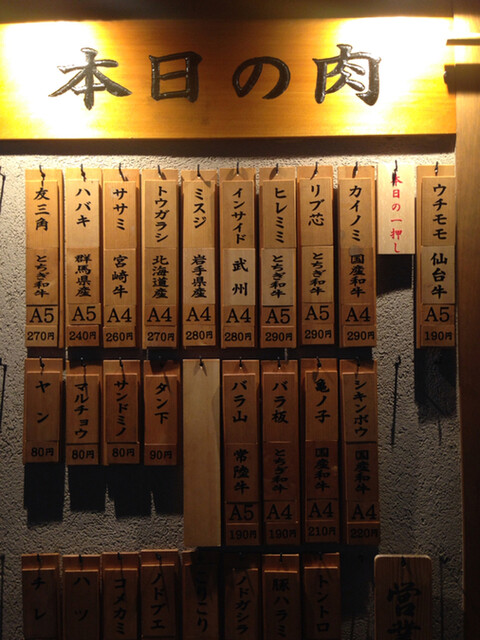 本日の肉
ウチモモ 仙台牛 A5 190円
本日の一押し
カイノミ 国産和牛 A4 290円
リブ芯 とちぎ和牛 A5 290円
ヒレミミ とちぎ和牛 A5 290円
インサイド 武州 A4 280円
ミスジ 岩手県産 A4 280円
トウガラシ 北海道産 A4 270円
ササミ 宮崎牛 A4 260円
ハバキ 群馬県産 A5 240円
友三角 とちぎ和牛 A5 270円
シキンボウ 国産和牛 A4 220円
亀ノ子 国産和牛 A4 210円
バラ板 とちぎ和牛 A4 190円
バラ山 常陸牛 A5 190円
タン下 90円
サンドミノ 80円
マルチョウ 80円
ヤン 80円
営業
トントロ
豚ハラミ
ノドガシラ
こりこり
ノドブエ
コメカミ
ハツ
チレ